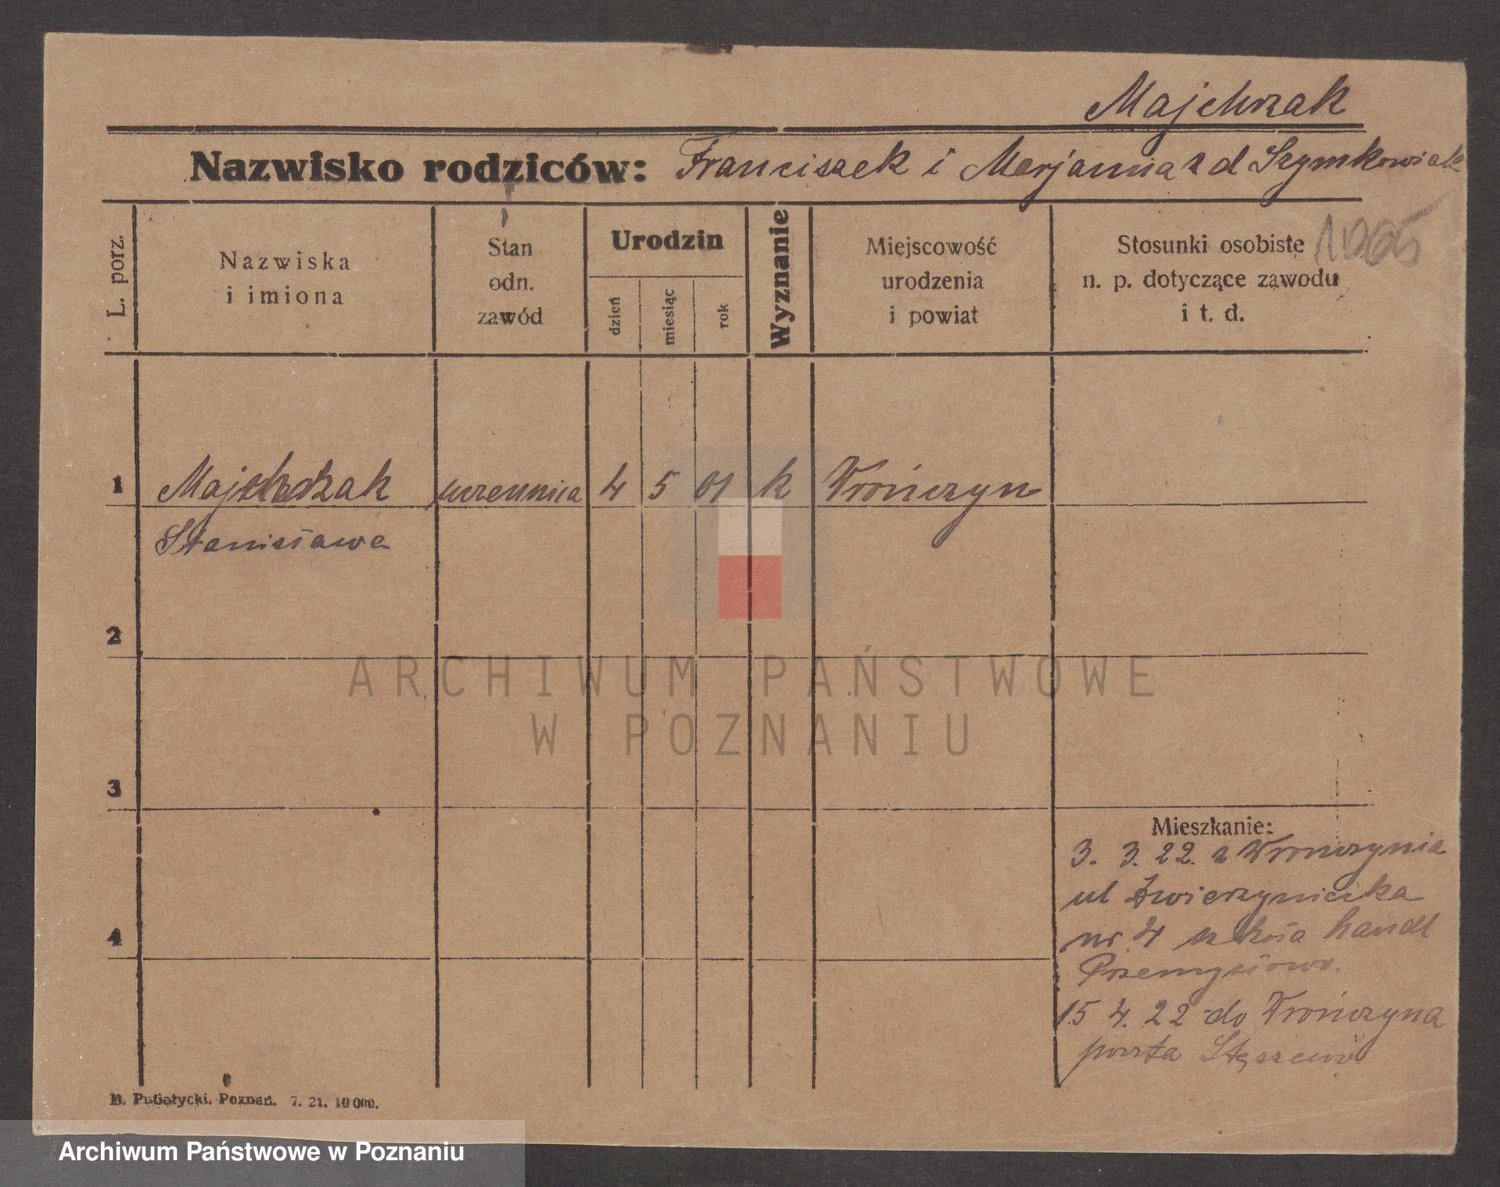 Majchrzak
Nazwisko rodziców: Franciszek i Marjanna z d Szymkowiak
L. porz.
Nazwiska
i imiona
Stan
odn.
zawód
Urodzin
dzień
miesiąc
rok
Wyznanie
Miejscowość
urodzenia
i powiat
Stosunki osobiste
n. p. dotyczące zawodu
i t. d.
1 Majchrzak uczennica 4 5 01 k Wrończyn
Stanisława
2
3
4
Mieszkanie:
3. 3. 22. z Wronczynia
ul Zwierzyniecka
nr. 4 szkoła handl
Przemysłowa.
15 4. 22 do Wrończyna
poczta Stęszewo
M. Putiatycki. Poznań. 7. 21. 10 000.
ARCHIWUM PAŃSTWOWE
W POZNANIU
Archiwum Państwowe w Poznaniu